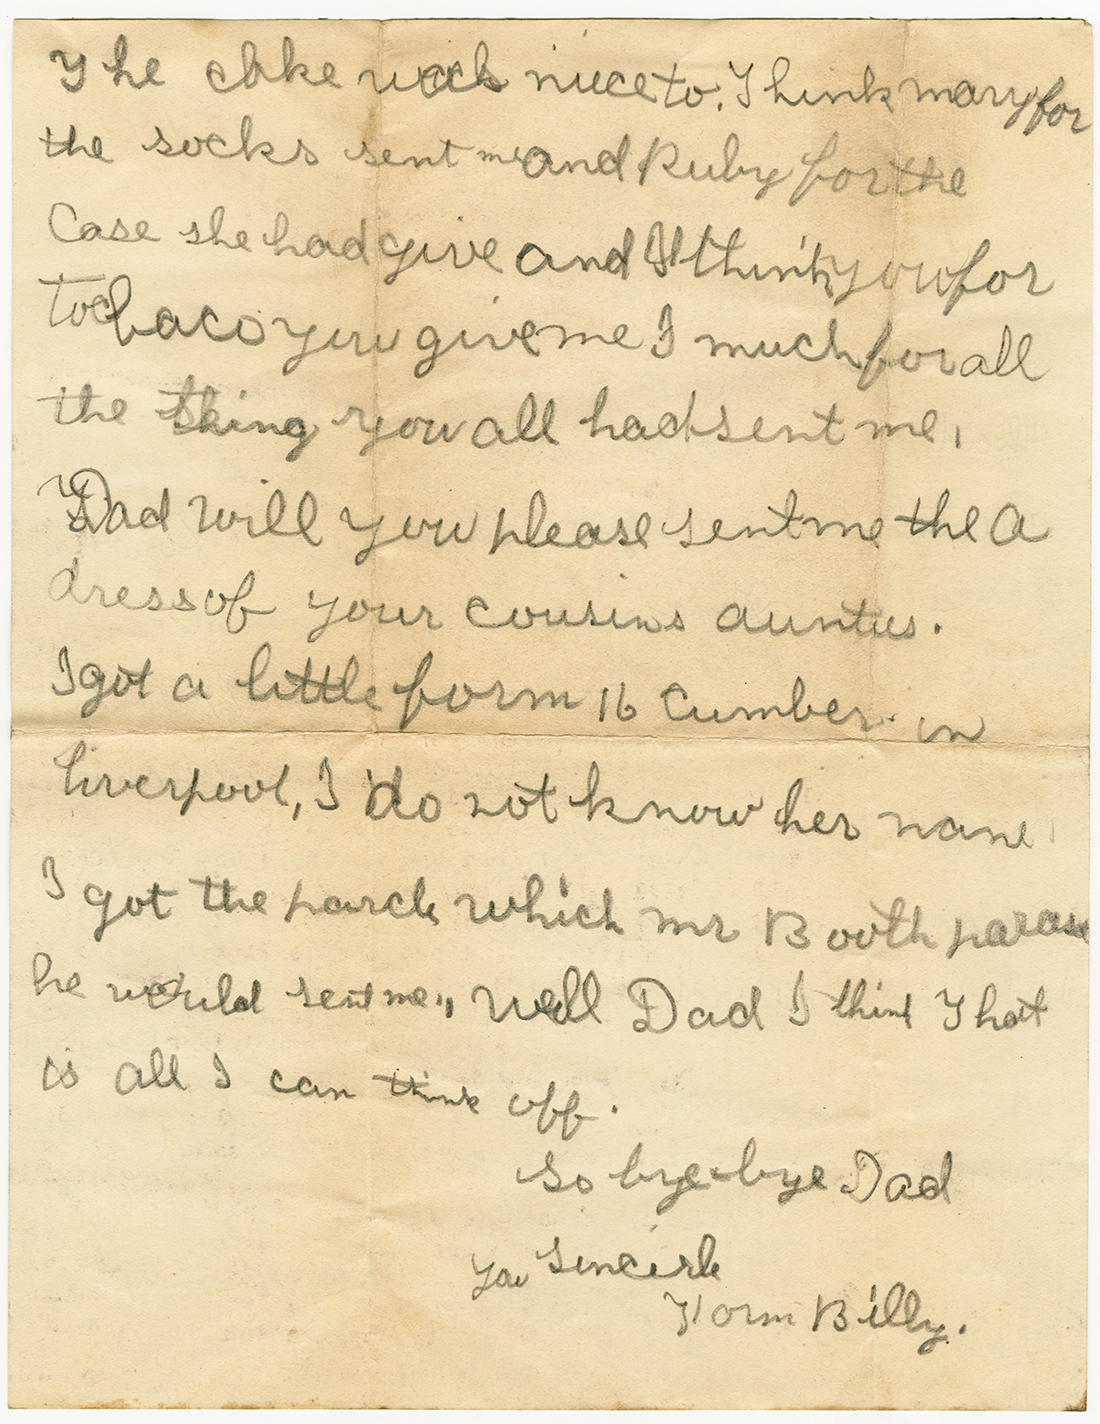 The cake was nice to. Think mary for
the socks sent me and Ruby for the
Case she had give and I think you for
tocbaco you give me I much for all
the thing you all had sent me,
Dad will you please sent me the a
dress of your cousins aunties.
I got a little form 16 Cumber. in
liverpool, I do not know her name
I got the parcle which mr Booth
he would sent me,, Well Dad I think That
is all I can think off.
So bye-bye Dad
You Sincirle
Form Billy.